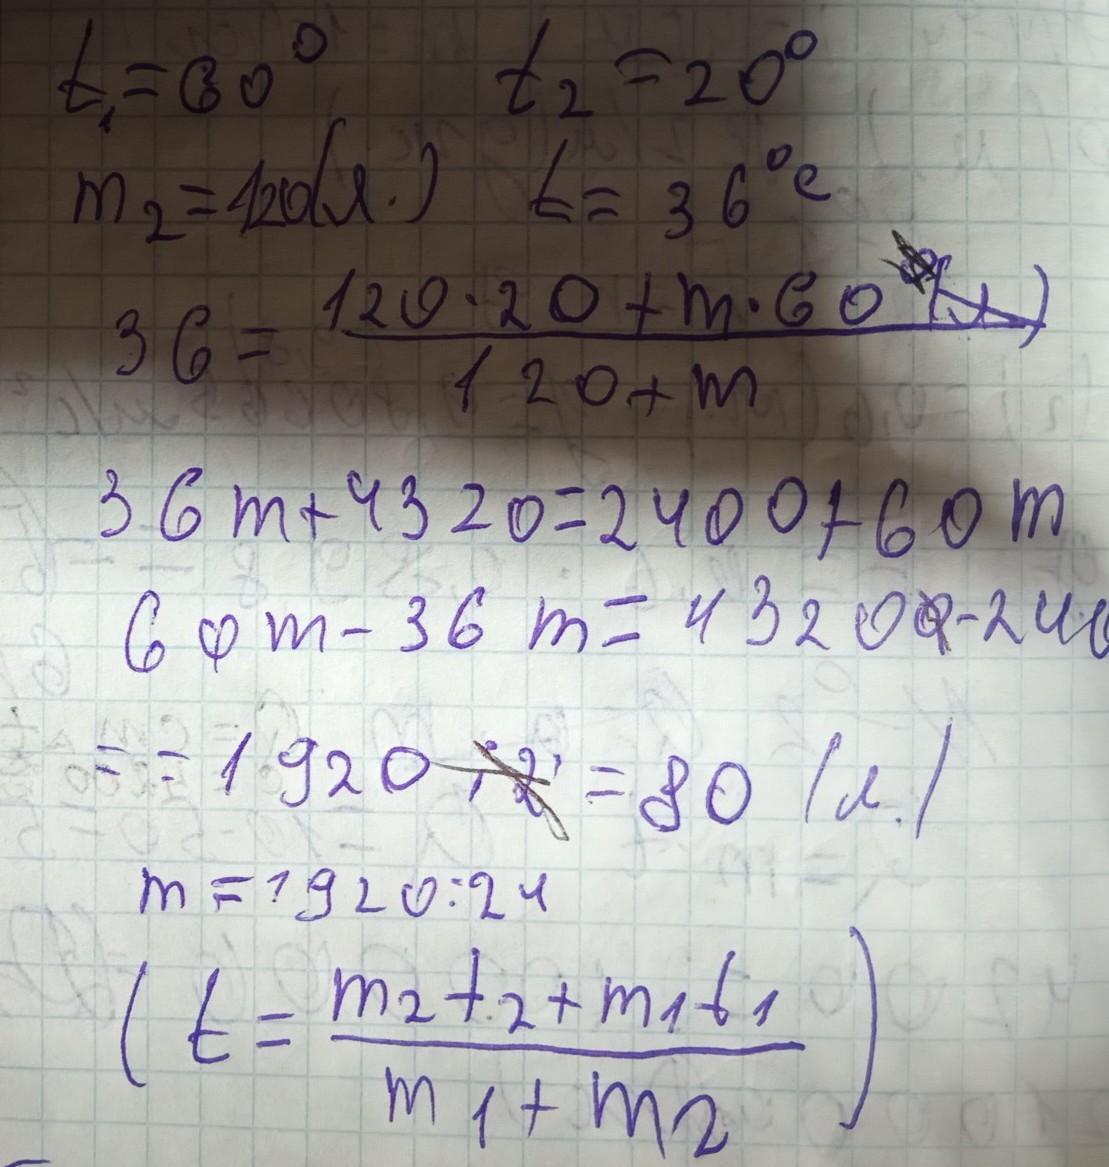 t₁ = 60° t₂ = 20°
m₂ = 120(л.) t = 36°c
36 = (120·20 + m·60) / (120 + m)
36m + 4320 = 2400 + 60m
60m - 36m = 4320 - 240
= = 1920 = 80 (л.)
m = 1920:24
(t = (m₂t₂ + m₁t₁) / (m₁ + m₂))